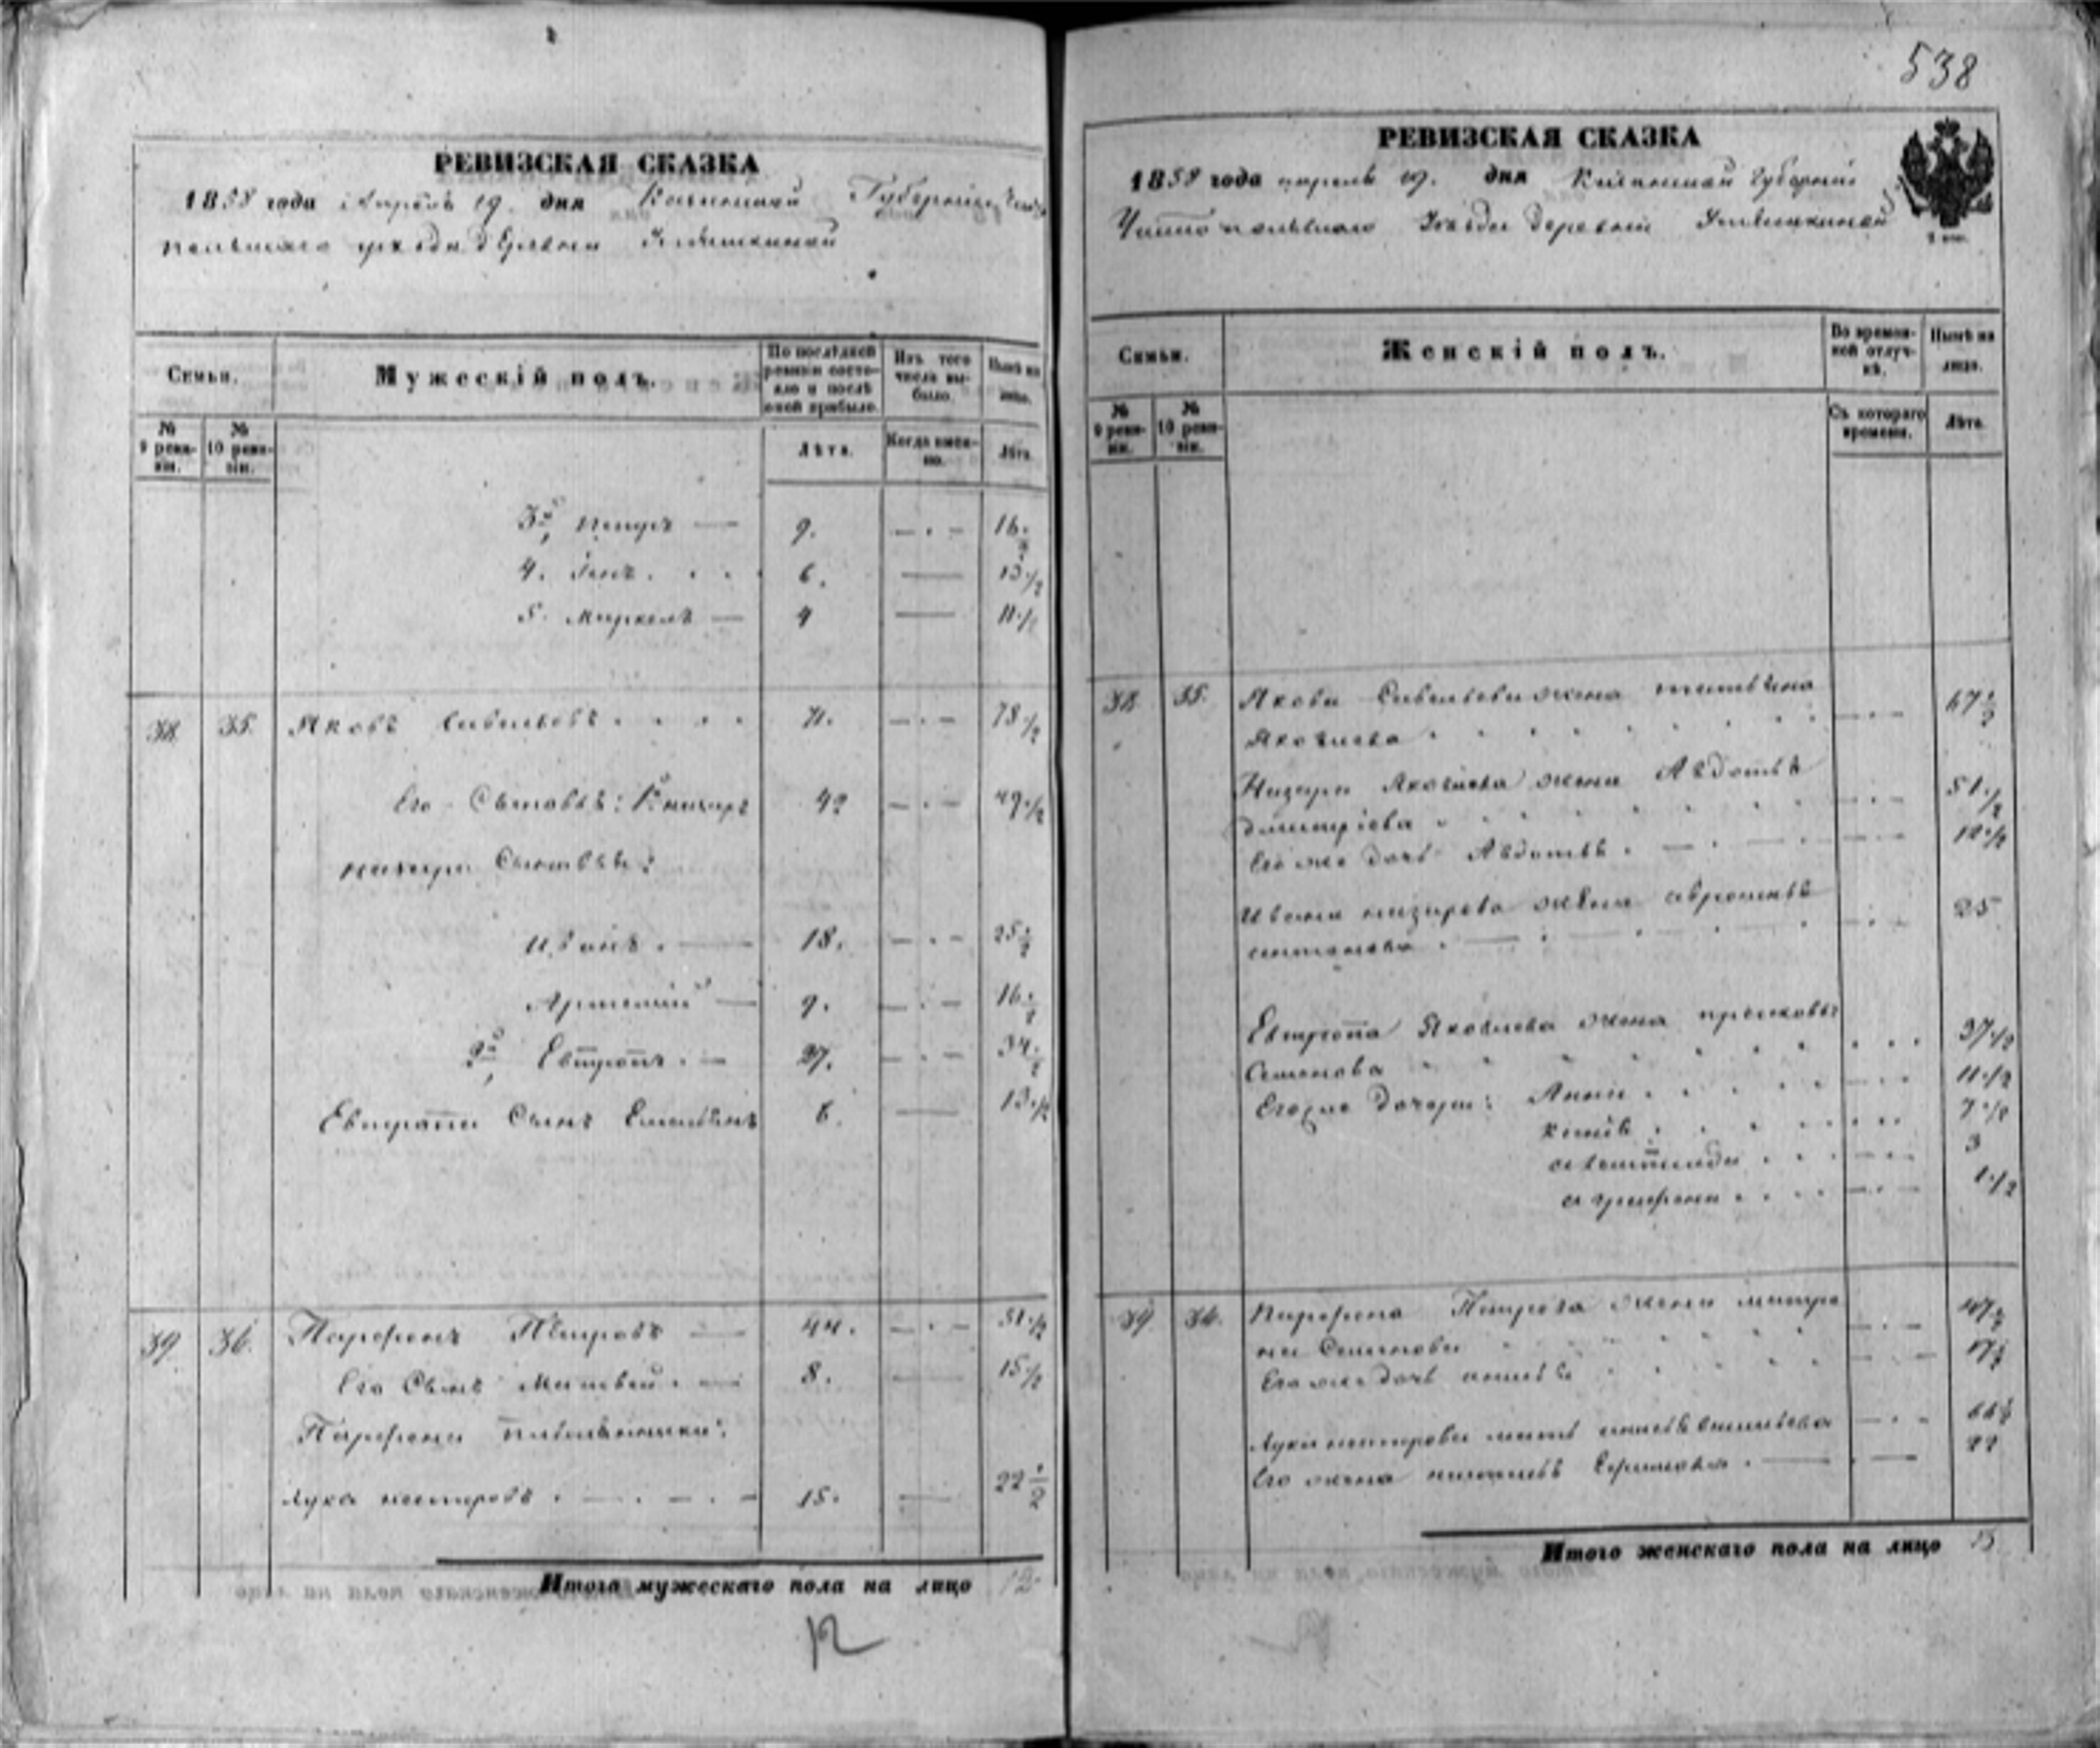 538
РЕВИЗСКАЯ СКАЗКА
1858 года Апреля 19 дня Казанской Губернии Чисто
польскаго уезда деревни
Семьи.
Мужескій полъ.
По послѣдней ревизіи состояло и послѣ оной прибыло.
Изъ того числа выбыло.
Нынѣ на лицо.
№ 9 ревизіи.
№ 10 ревизіи.
Лѣта.
Когда именно.
Лѣта.
3й Петръ — 9. — . — 16 1/2
4. . . . 6. — 13 1/2
5. Маркелъ — 4 — 11 1/2
38 35. Яковъ Савельевъ . . . . 71. — . — 78 1/2
Его Сыновья: 1й Назаръ 42 — . — 49 1/2
Назара Сыновья:
Иванъ . — 18. — . — 25 1/2
Артемій — 9. — . — 16 1/2
2й Евтропъ . — 27. — . — 34 1/2
Евтропа Сынъ Емельянъ 6. — 13 1/2
39 36. Парфенъ Петровъ — 44. — . — 51 1/2
Его Сынъ Матвей . — 8. — 15 1/2
Парфена племянники:
Лука Нестеровъ . — . — . — 15. — 22 1/2
Итого мужескаго пола на лицо 12
12
РЕВИЗСКАЯ СКАЗКА
1858 года апреля 19. дня Казанской губерніи
Чистопольскаго Уезда деревни
Семьи.
Женскій полъ.
Во временной отлучкѣ.
Нынѣ на лицо.
№ 9 ревизіи.
№ 10 ревизіи.
Съ котораго времени.
Лѣта.
38 35. Якова Савельева жена Татьяна
Яковлева . . . . . . . — . — 67 1/2
Назара Яковлева жена Авдотья
Дмитріева . . . . . . — . — 51 1/2
Его же дочь Авдотья . — . — — . — 12 1/2
Ивана Назарова жена
. — . — . . — . — 25
Евтропа Яковлева жена Прасковья
Семенова . . . . . . . . . 37 1/2
Его же дочери: Анна . . . . . — . — 11 1/2
. . . . . . . 7 1/2
. . . — . — 3
Аграфена . . . . — . — 1 1/2
39 36. Парфена Петрова жена Матре
на Семенова . . . . . . — . — 47 1/2
Его же дочь . . . . . — . — 17 1/2
Луки Нестерова мать Васильева — . — 66 1/2
Его жена Ефимова . — . — 22
Итого женскаго пола на лицо 13